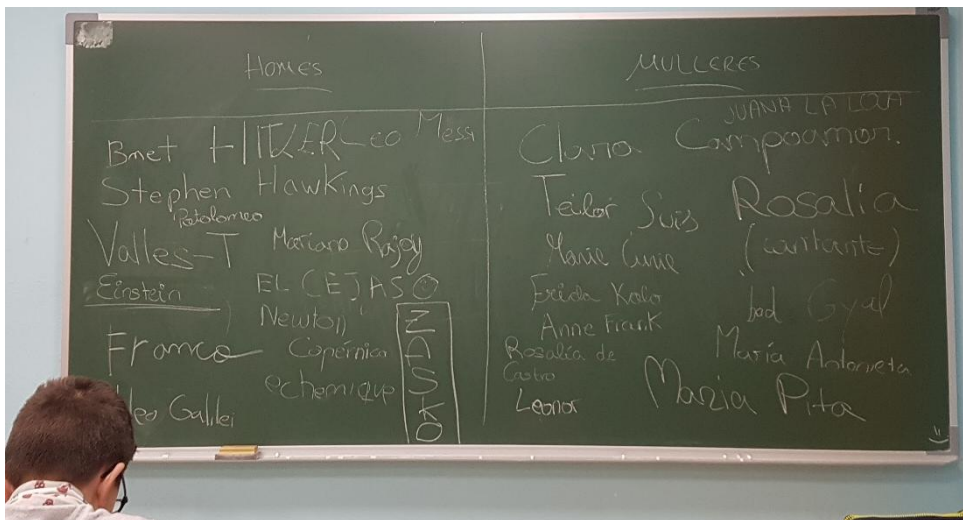 HOMES
Bmet HITLER Leo Messi
Stephen Hawkings
Patolomeo
Valles-T Mariano Rajoy
EL CEJAS
Einstein
Newton
Franco
Copérnico
echenique
leo Galilei
ZASKO
MULLERES
JUANA LA LOCA
Clara Campoamor.
Teilor Suis Rosalía
(cantante)
Marie Curie
Frida Kalo bad Gyal
Anne Frank
María Antonieta
Rosalía de
Castro
Leonor María Pita